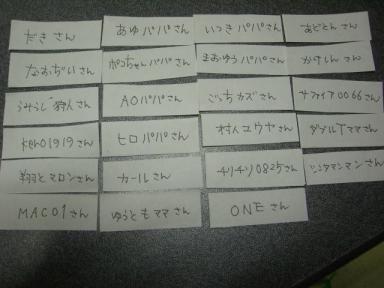 だき さん
あゆパパ さん
いつきパパ さん
あどとん さん
なおぢい さん
ポコちゃんパパ さん
まおゆうパパ さん
かけしん さん
うみうし狩人 さん
AOパパ さん
ごっちカズ さん
サファイア0066 さん
ken01919 さん
ヒロパパ さん
村人ユウヤ さん
ダブルTママ さん
翔とマロン さん
カール さん
チリチリ0825 さん
マンさん
MAC01 さん
ゆうともママ さん
ONE さん